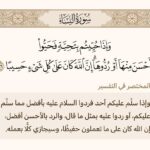 سورة النساء
وإذا حييتم بتحية فحيوا
بأحسن منها أو ردوها إن الله كان على كل شيء حسيبا
المختصر في التفسير
وإذا سلّم عليكم أحد فردوا السلام عليه بأفضل مما سلّم
عليكم، أو ردوا عليه بمثل ما قال، والرد بالأحسن أفضل،
إن الله كان على ما تعملون حفيظًا، وسيجازي كلًّا بعمله.